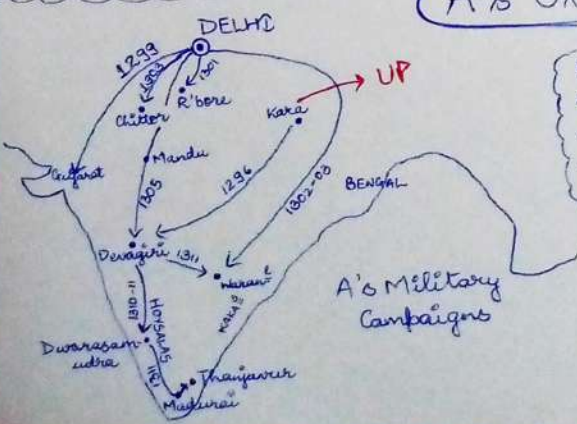 DELHI
1299
1303
1301
R'bore
Chittor
Kara
UP
Mandu
Gujarat
1305
1296
1302-03
BENGAL
Devagiri
1311
1310-11
HOYSALAS
A's Military
Campaigns
Dwarasam-
udra
1311
Thanjavur
Madurai